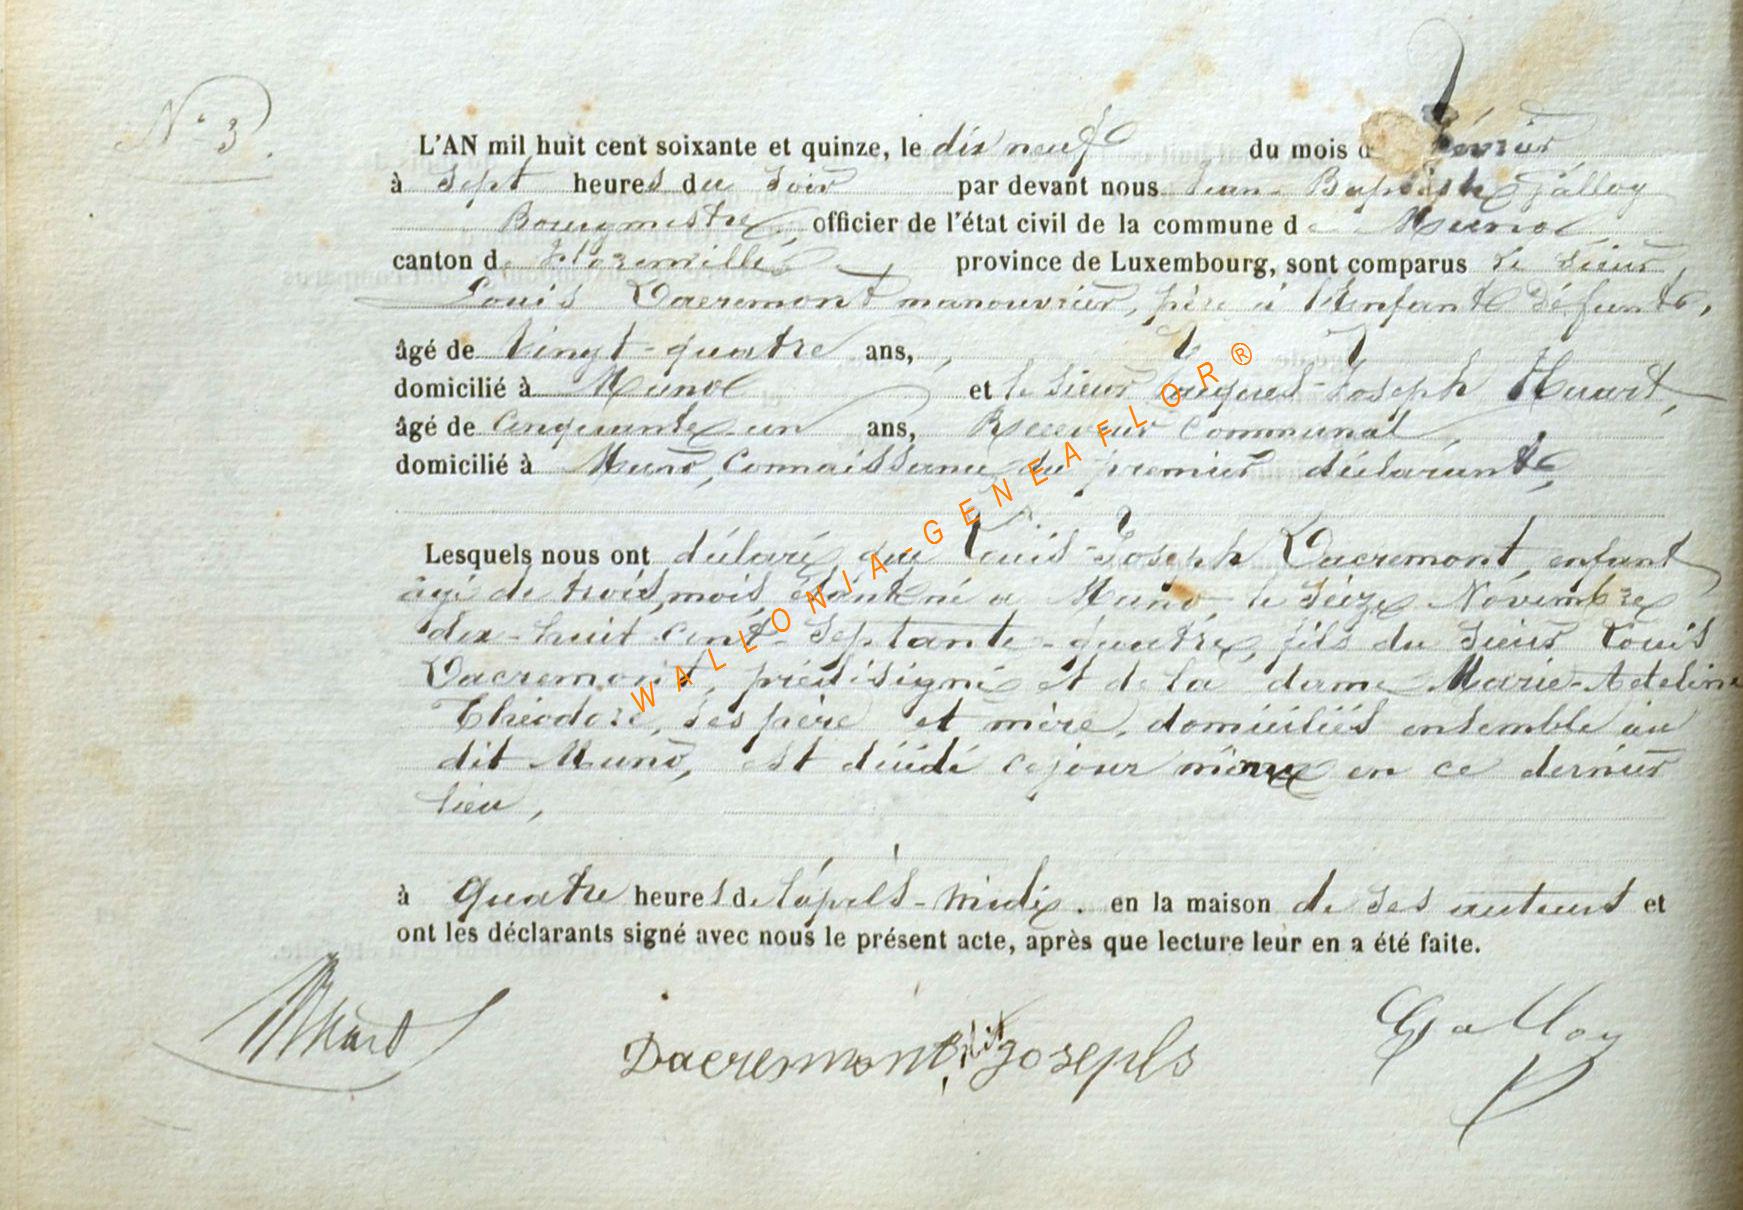 N° 3.
L'AN mil huit cent soixante et quinze, le dix neuf du mois d février
à sept heures du soir par devant nous Jean-Baptiste Galloy
Bourgmestre, officier de l'état civil de la commune de Muno
canton de Florenville province de Luxembourg, sont comparus le sieur
Louis Dacremont manouvrier, père à l'Enfant défunt,
âgé de Vingt-quatre ans,
domicilié à Muno et le sieur Jacques-Joseph Huart,
âgé de Cinquante-un ans, Receveur Communal,
domicilié à Muno, Connaissance du premier déclarant,
Lesquels nous ont déclaré que Louis-Joseph Dacremont, enfant
âgé de trois mois, étant né à Muno, le seize Novembre
dix-huit cent septante-quatre, fils du sieur Louis
Dacremont, prédésigné et de la dame Marie-Adeline
Théodore, ses père et mère, domiciliés ensemble au
dit Muno, est décédé ce jour même en ce dernier
lieu,
à quatre heures de l'après-midi. en la maison de ses auteurs et
ont les déclarants signé avec nous le présent acte, après que lecture leur en a été faite.
Huart Dacremont, dit Joseph Galloy
WALLONIA-GENEAFLOR®